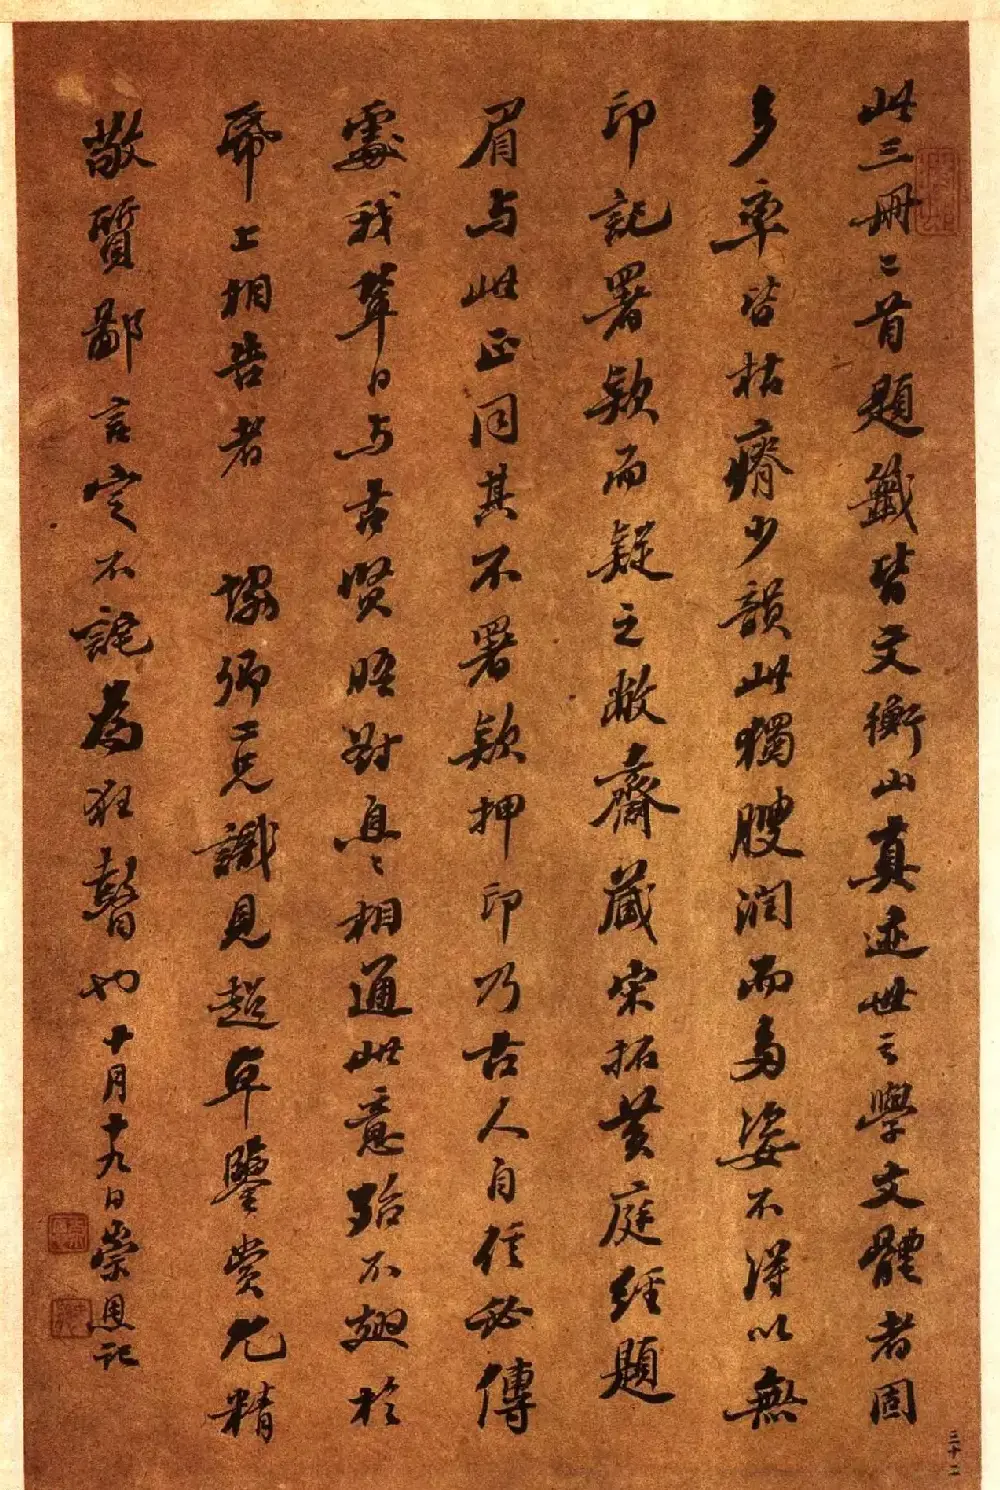 此三冊〻首題籤皆文衡山真迹世之學文體者固
多率皆枯瘠少韻此獨腴潤而多姿不得以無
印記署款而疑之敝齋藏宋拓黃庭經題
眉与此正同其不署款押印乃古人自任必傳
處我輩日与古賢晤對息〻相通此意殆不翅於
帋上相告者 協卿二兄識見超卓鑒賞尤精
敬質鄙言定不詫為狂瞽也十月十九日崇恩記
三十二